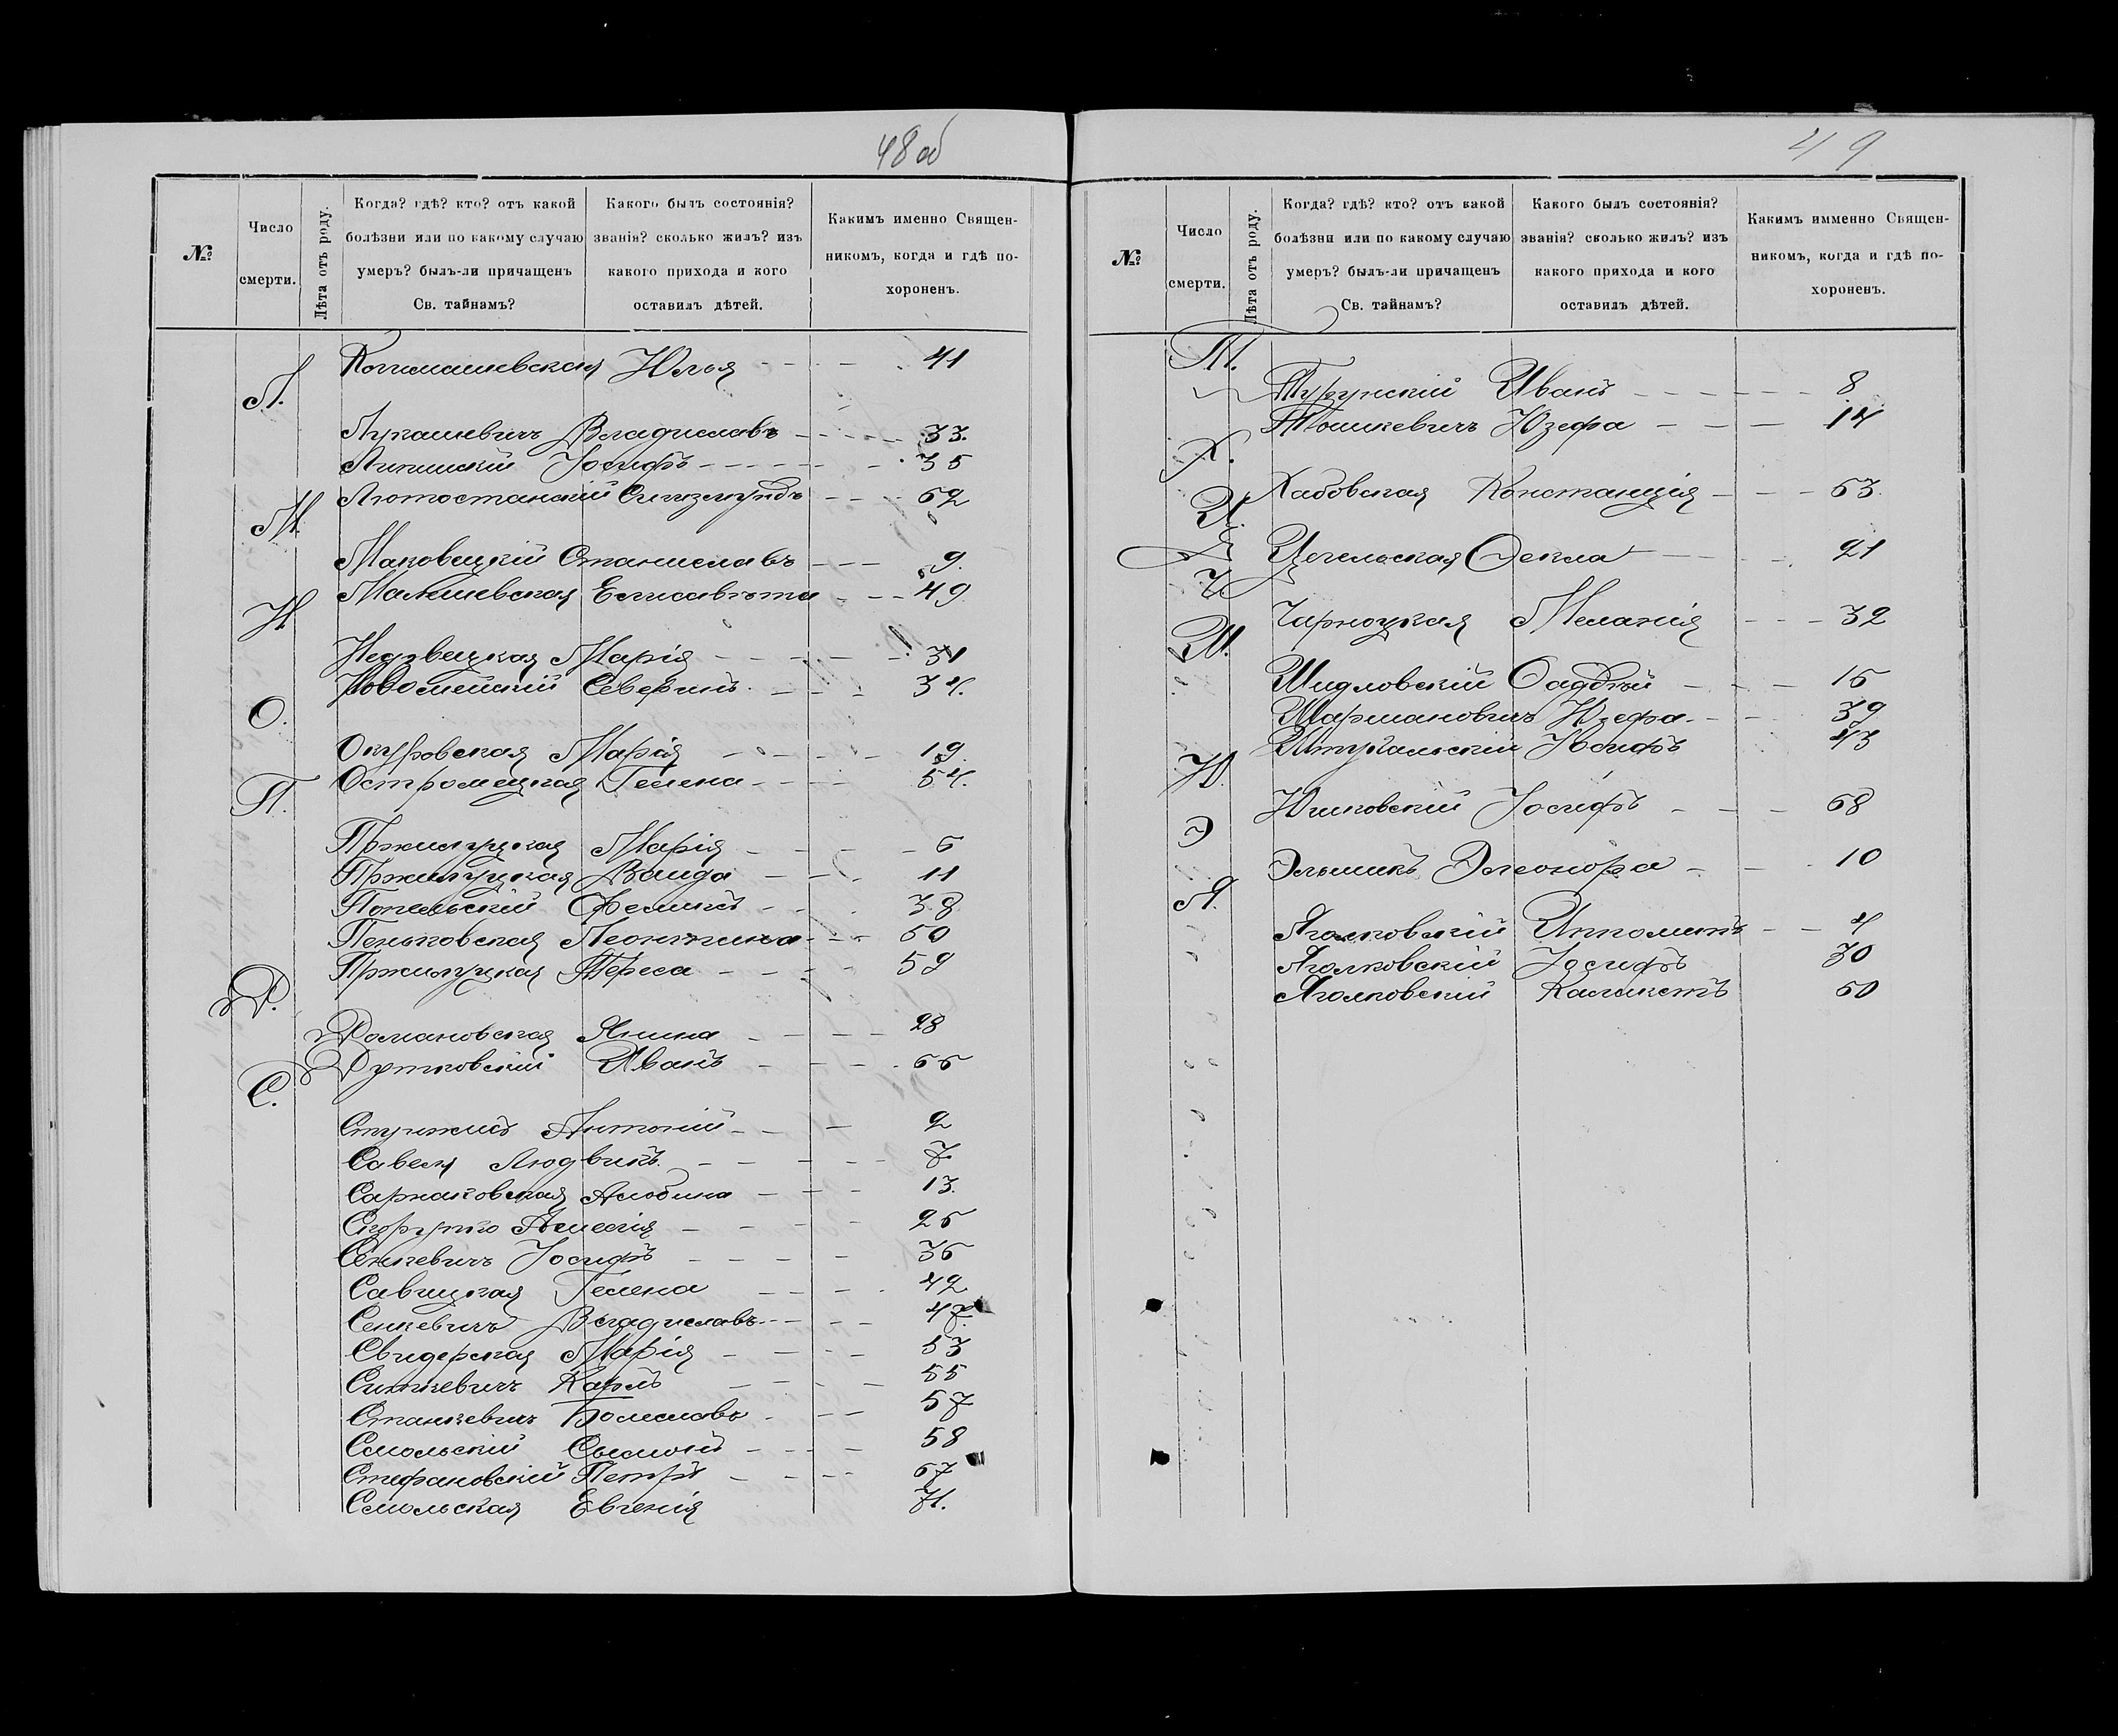 48 об
№
Число смерти.
Лѣта отъ роду.
Когда? гдѣ? кто? отъ какой болѣзни или по какому случаю умеръ? былъ-ли причащенъ Св. тайнамъ?
Какого былъ состоянія? званія? сколько жилъ? изъ какого прихода и кого оставилъ дѣтей.
Какимъ именно Священникомъ, когда и гдѣ похороненъ.
Юлья 41
Л.
Лукашевичъ Владиславъ 33.
Липинскій Іосифъ 35
Лютостанскій Сигизмундъ 62
М.
Маковецкій Станиславъ 9.
Малишевская Елисавѣта 49
Н
Недзвецкая Марія 31
Новомейскій Северинъ 34.
О.
Окуровская Марія 19
Остромецкая Гелена 54.
П.
Пржилуцкая Марія 6
Пржилуцкая Ванда 11
Попельскій Феликсъ 38
Пеньковская Леонтина 50
Пржилуцкая Тереса 59
Р.
Романовская Янина 28
Рутковскій Иванъ 66
С.
Антоній 2
Людвикъ 7
Сарнаковская Альбина 13.
Скорупко 25
Сенкевичъ Іосифъ 36
Савицкая Гелена 42
Сенкевичъ Владиславъ 47.
Свидерская Марія 53
Синкевичъ Карлъ 55
Станкевичъ Болеславъ 57
Смольскій 58
Стефановскій Петръ 67
Смольская Евгенія 71.
49
№
Число смерти.
Лѣта отъ роду.
Когда? гдѣ? кто? отъ какой болѣзни или по какому случаю умеръ? былъ-ли причащенъ Св. тайнамъ?
Какого былъ состоянія? званія? сколько жилъ? изъ какого прихода и кого оставилъ дѣтей.
Какимъ имменно Священникомъ, когда и гдѣ похороненъ.
Т.
Иванъ 8
Тошкевичъ Юзефа 14
Х.
Хабовская Констанція 63.
Ц
Цегельская Фекла 21
Ч
Чарноцкая Меланія 32
Ш.
Шидловскій Фаддѣй 15
Шармановичъ Юзефа 39
Іосифъ 43
Ю.
Юшковскій Іосифъ 68
Э
Элеонора 10
Я.
Яголковскій Ипполитъ 4
Яголковскій Іосифъ 30
Яголковскій Каликстъ 60